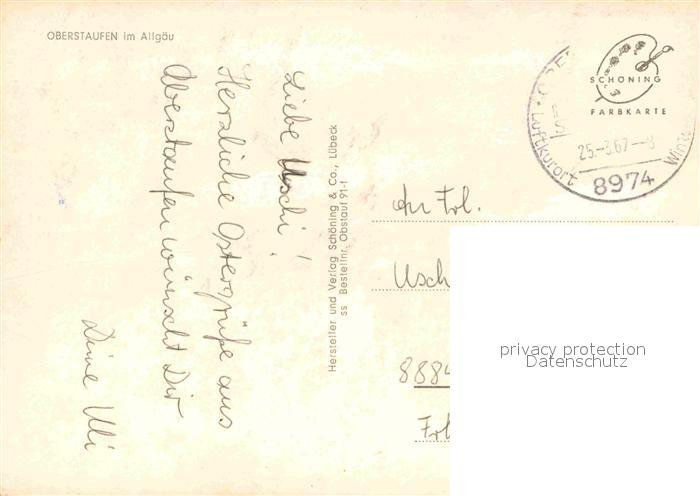 OBERSTAUFEN im Allgäu
Liebe Uschi!
Herzliche Ostergrüße aus
Oberstaufen wünscht Dir
Deine Uli
Hersteller und Verlag Schöning & Co., Lübeck
ss Bestellnr. Obstauf 91-1
SCHÖNING
FARBKARTE
Luftkurort
25.-3.67.--8
Winte
8974
An Frl.
Usch
888
privacy protection
Datenschutz